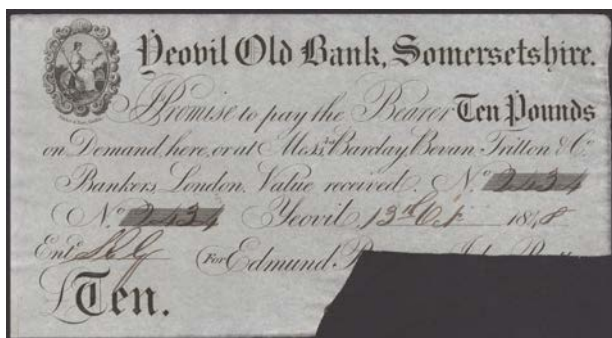 Yeovil Old Bank, Somersetshire.
I Promise to pay the Bearer Ten Pounds
on Demand, here, or at Mess.rs Barclay, Bevan, Tritton & Co.
Bankers, London. Value received. No. 2434
No. 2434 Yeovil, 13th 1848
Entd. For Edmund
£Ten.